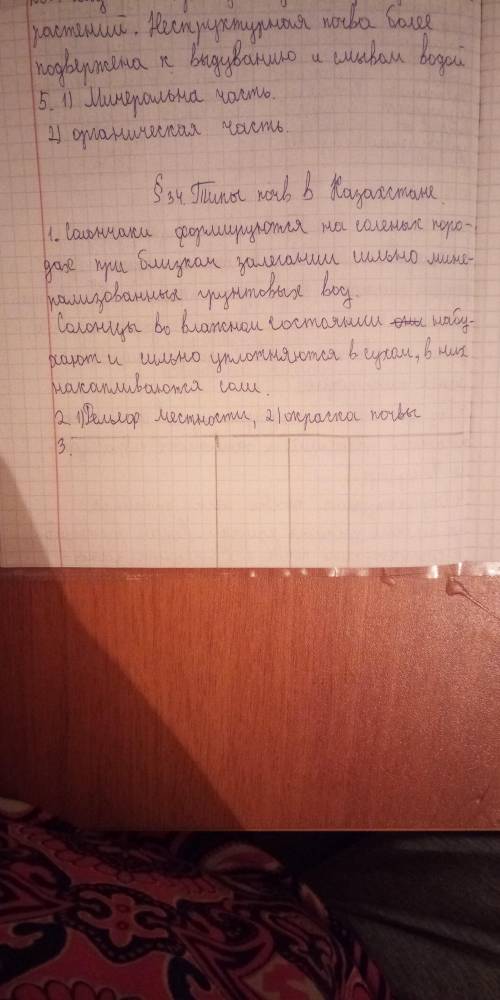 растений. Неструктурная почва более
подвержена к выдуванию и смывам водой
5. 1) Минеральна часть.
2) органическая часть.
§ 34. Типы почв в Казахстане.
1. Солончаки формируются на соленых поро-
дах при близком залегании сильно мине-
рализованных грунтовых вод.
Солонцы во влажном состоянии они набу-
хают и сильно уплотняются в сухом, в них
накапливаются соли.
2. 1) Рельеф местности, 2) окраска почвы
3.